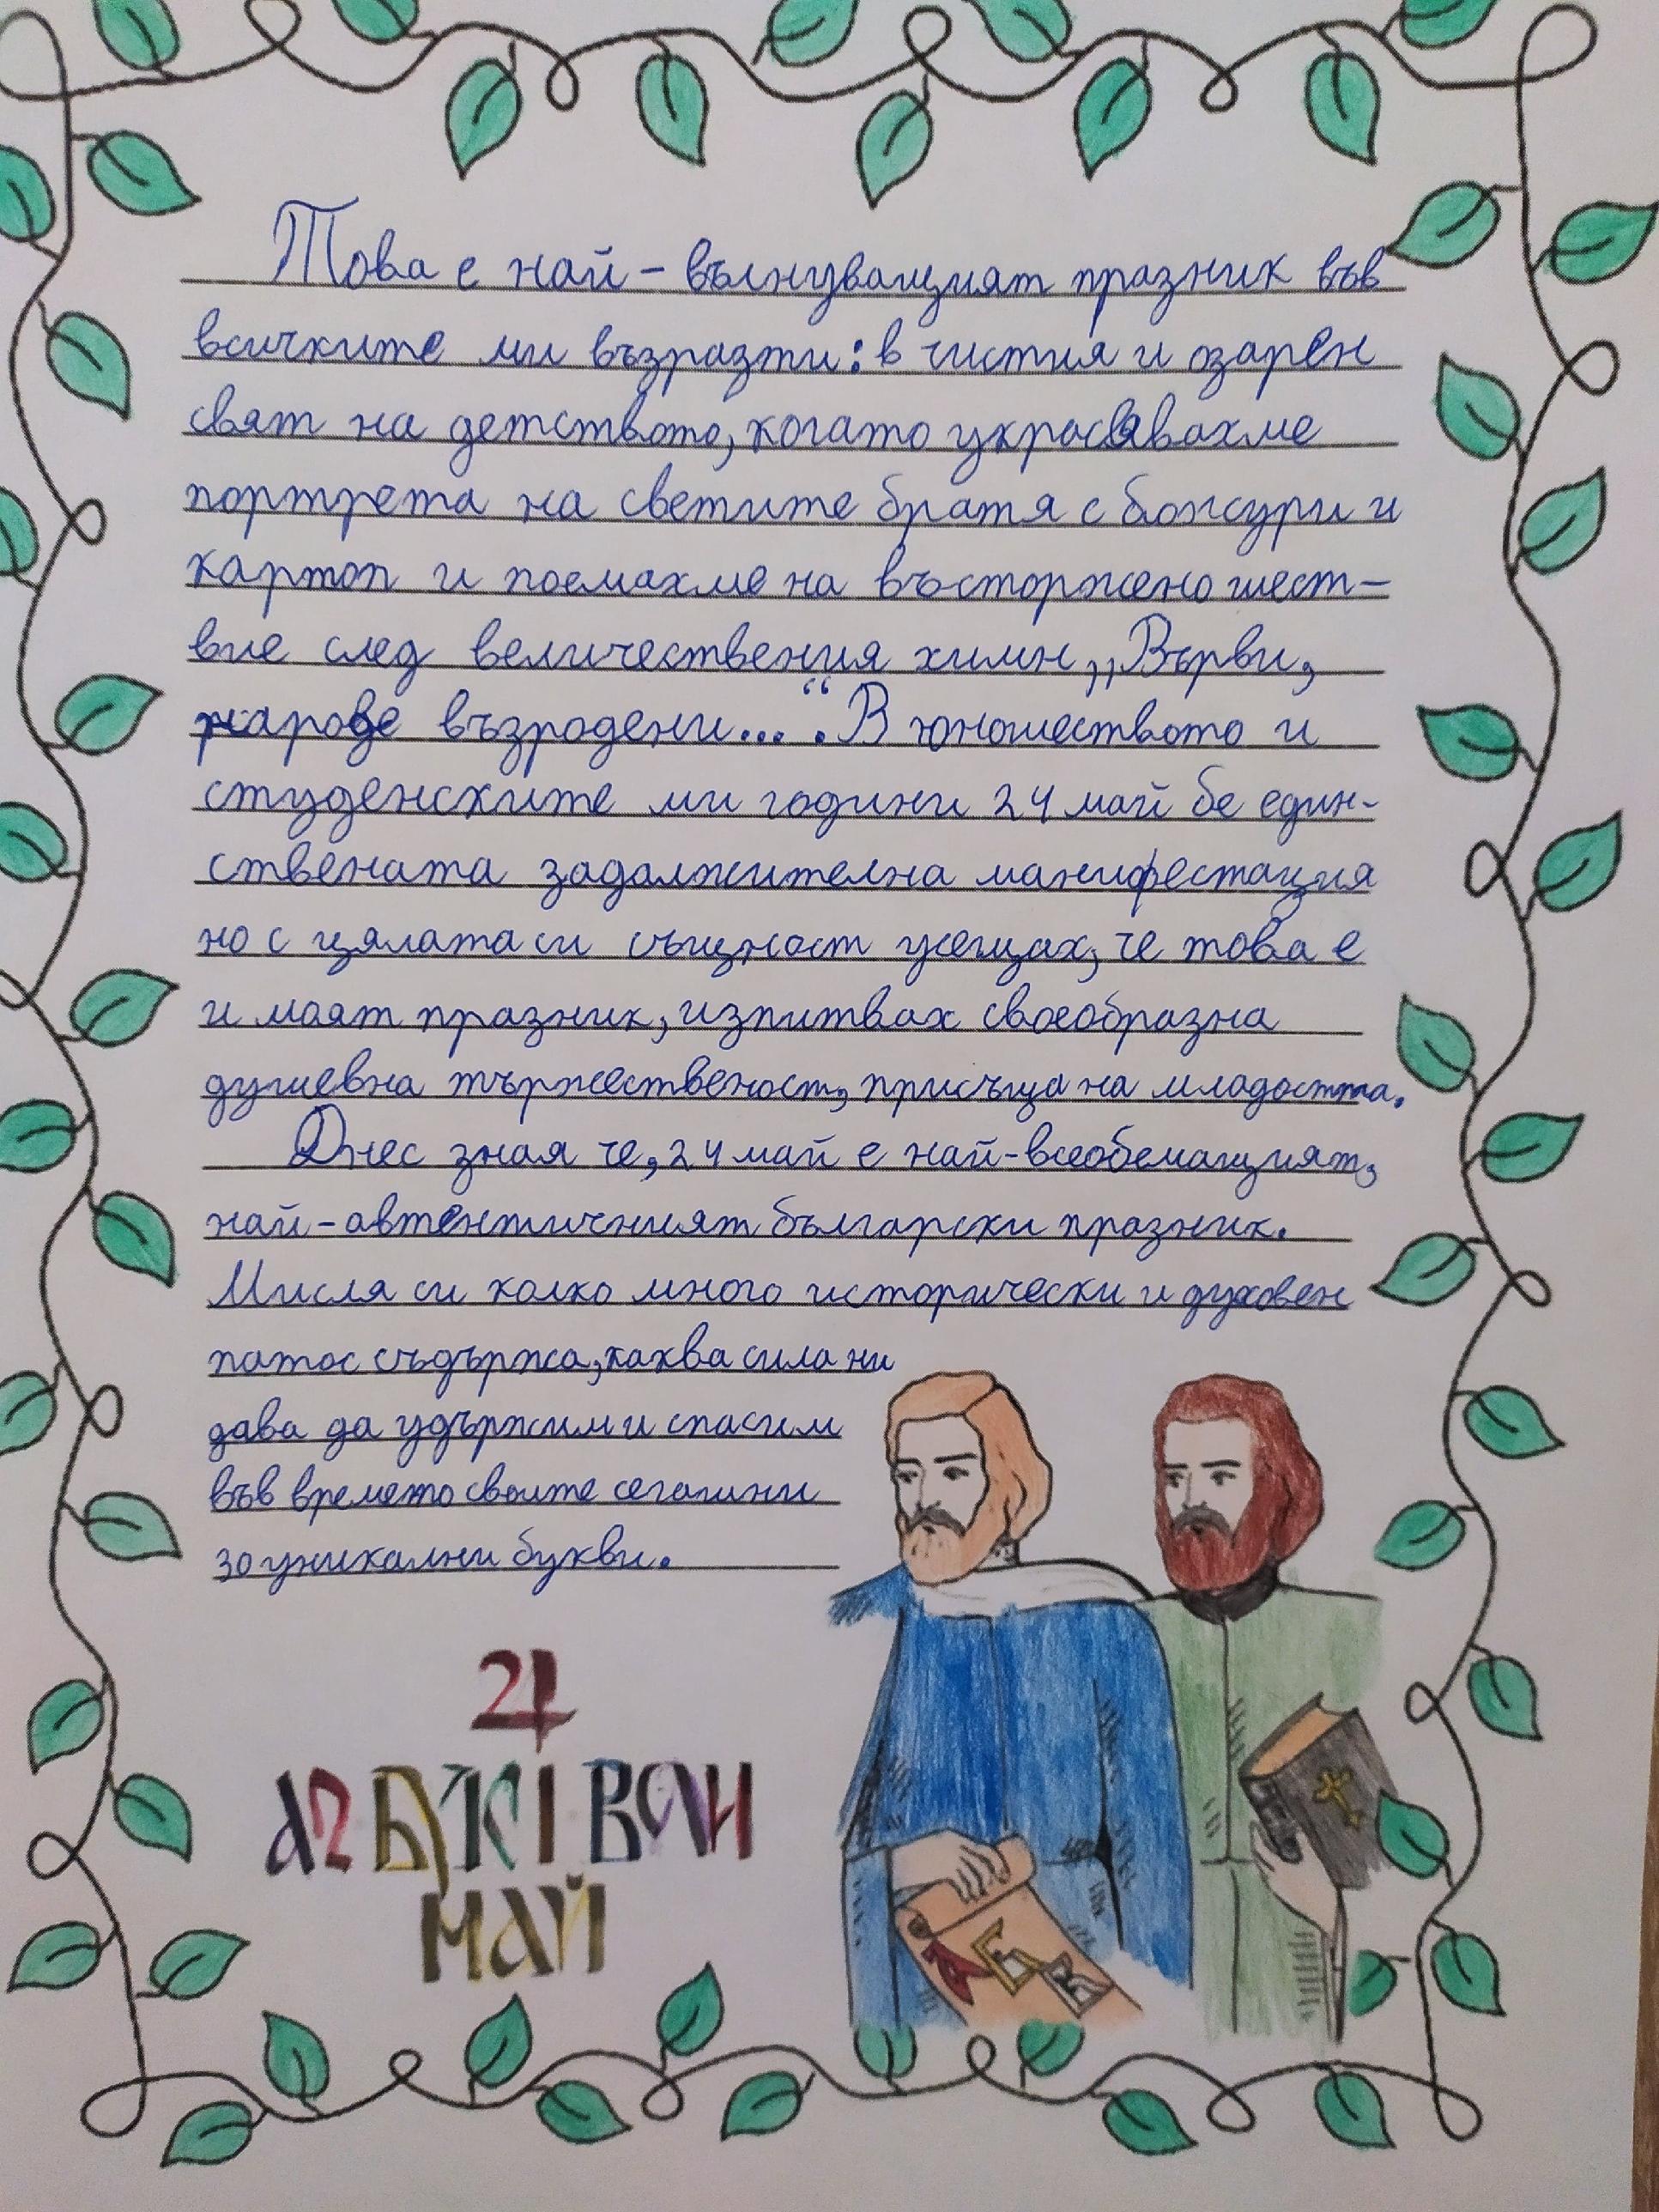 Това е най-вълнуващият празник във
всичките ми възразти: в чистия и озарен
свят на детството, когато украсявахме
портрета на светите братя с божури и
картоп и поемахме на въсторжено шест-
вие след величествения химн „Върви,
народе възродени...“. В юношеството и
студенските ми години 24 май бе един-
ствената задалжителна манифестация
но с цялата си същност усещах, че това е
и моят празник, изпитвах своеобразна
душевна тържественост, присъща на младостта.
Днес зная че, 24 май е най-всеобемащият,
най-автентичният български празник.
Мисля си колко много исторически и духовен
патос съдържа, каква сила ни
дава да удържим и спасим
във времето своите сегашни
30 уникални букви.
24
АЗ БУКІ ВѢДИ
МАЙ
А Б В